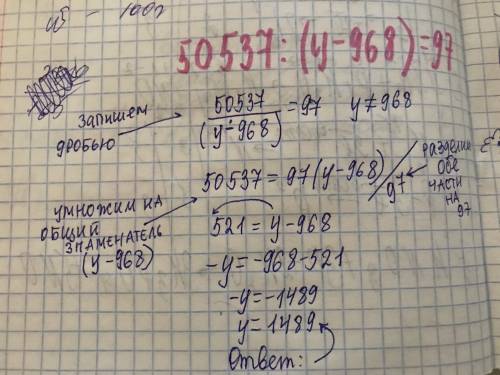 45 - 100г
50537:(y-968)=97
запишем
дробью
50537/(y-968)=97 y≠968
50537=97(y-968) /97
разделим
обе
части
на
97
умножим на
общий
знаменатель
(y-968)
521=y-968
-y=-968-521
-y=-1489
y=1489
Ответ: